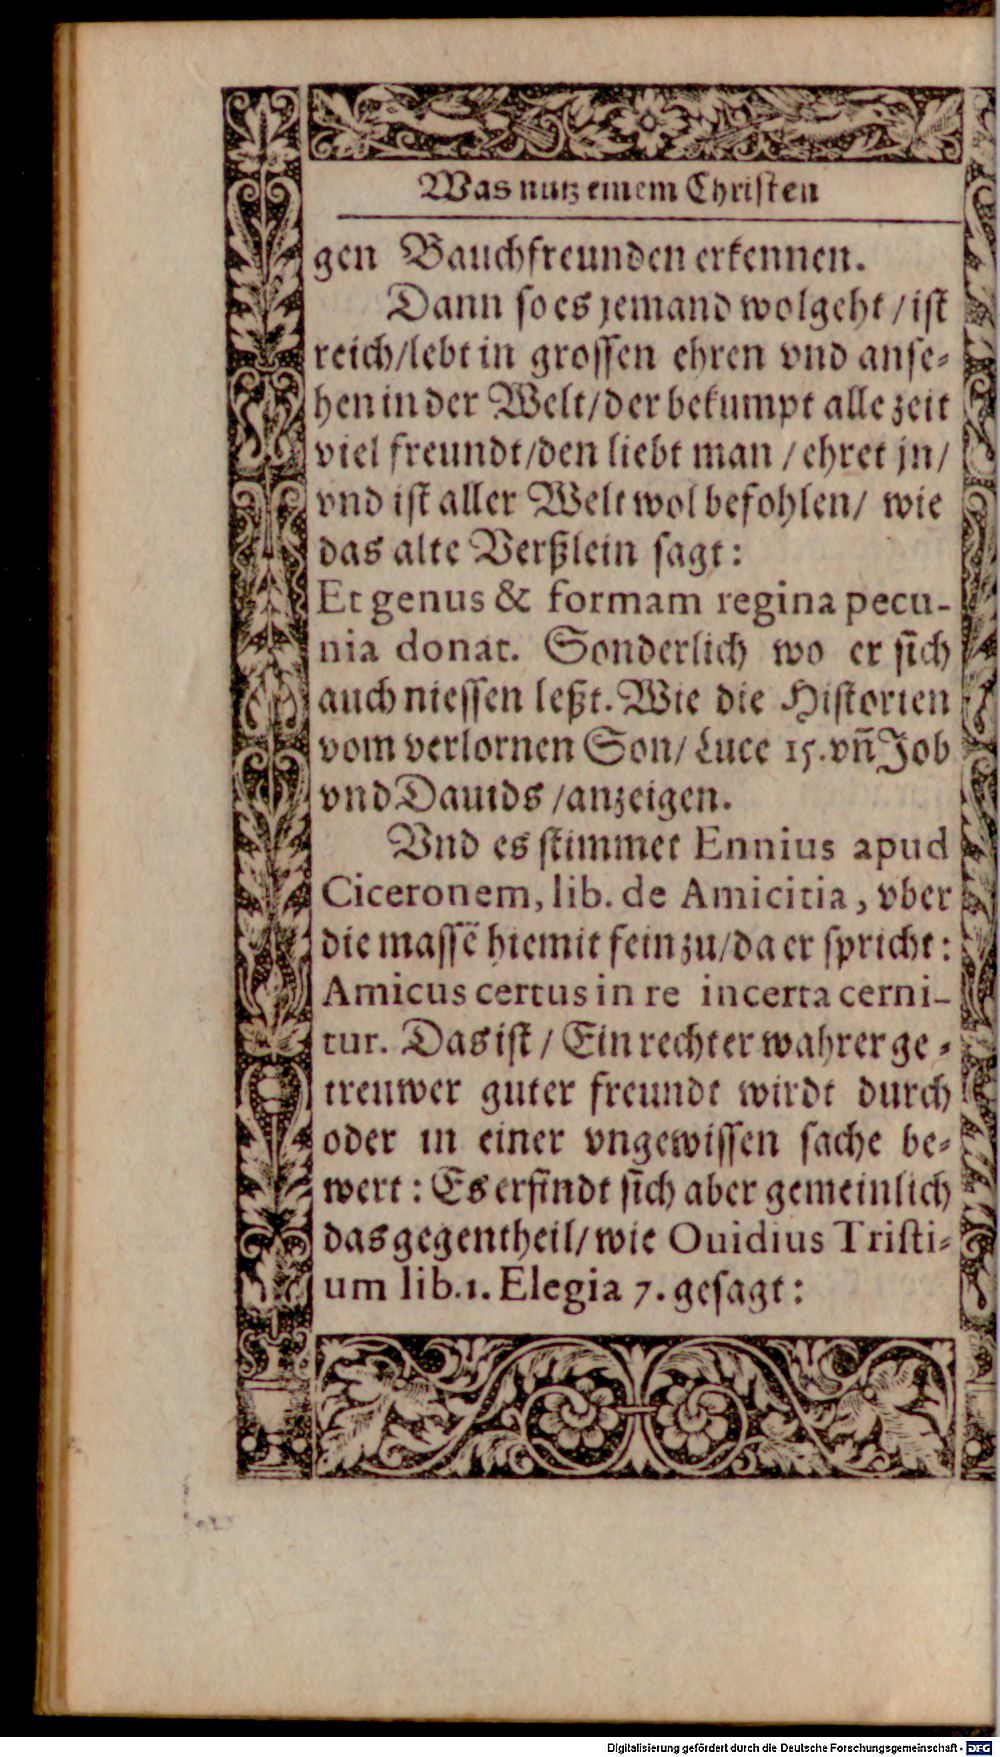 Was nutz einem Christen
gen Bauchfreunden erkennen.
Dann so es jemand wolgeht / ist
reich/lebt in grossen ehren vnd anse⸗
hen in der Welt/der bekumpt alle zeit
viel freundt/den liebt man / ehret jn/
vnd ist aller Welt wol befohlen/ wie
das alte Verßlein sagt:
Et genus & formam regina pecu-
nia donat. Sonderlich wo er sich
auch niessen leßt. Wie die Historien
vom verlornen Son/ Luce 15. vn̄ Job
vnd Dauids /anzeigen.
Vnd es stimmet Ennius apud
Ciceronem, lib. de Amicitia, vber
die massē hiemit fein zu/da er spricht:
Amicus certus in re incerta cerni-
tur. Das ist / Ein rechter wahrer ge⸗
treuwer guter freundt wirdt durch
oder in einer vngewissen sache be⸗
wert: Es erfindt sich aber gemeinlich
das gegentheil/ wie Ouidius Tristi⸗
um lib. 1. Elegia 7. gesagt:
Digitalisierung gefördert durch die Deutsche Forschungsgemeinschaft - DFG